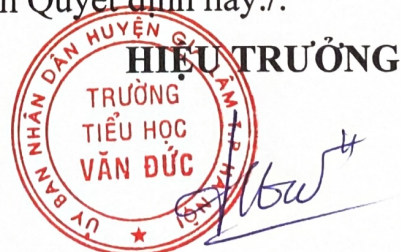 Quyết định này./.
HIỆU TRƯỞNG
ỦY BAN NHÂN DÂN HUYỆN GIA LÂM T.P HÀ NỘI
TRƯỜNG
TIỂU HỌC
VĂN ĐỨC